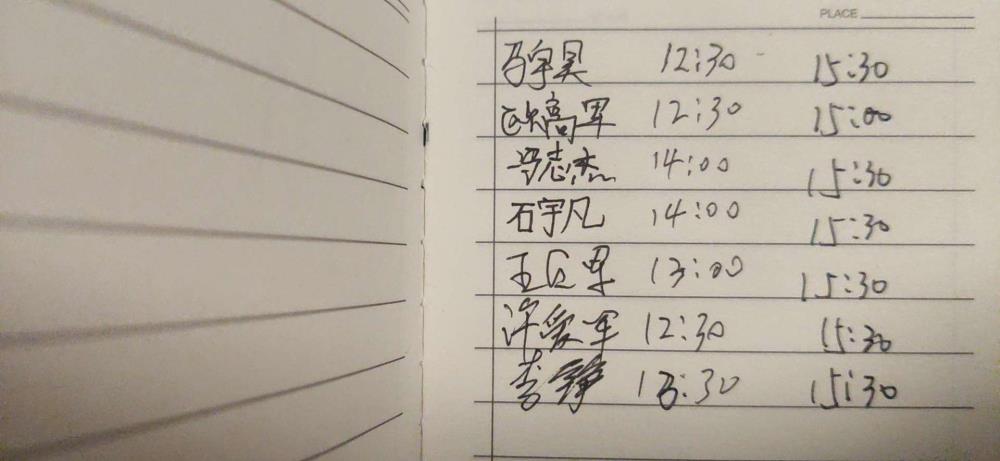 PLACE
马宇昊 12:30 15:30
欧高军 12:30 15:00
冯志杰 14:00 15:30
石宇凡 14:00 15:30
王 13:00 15:30
许爱军 12:30 15:30
李 13:30 15:30